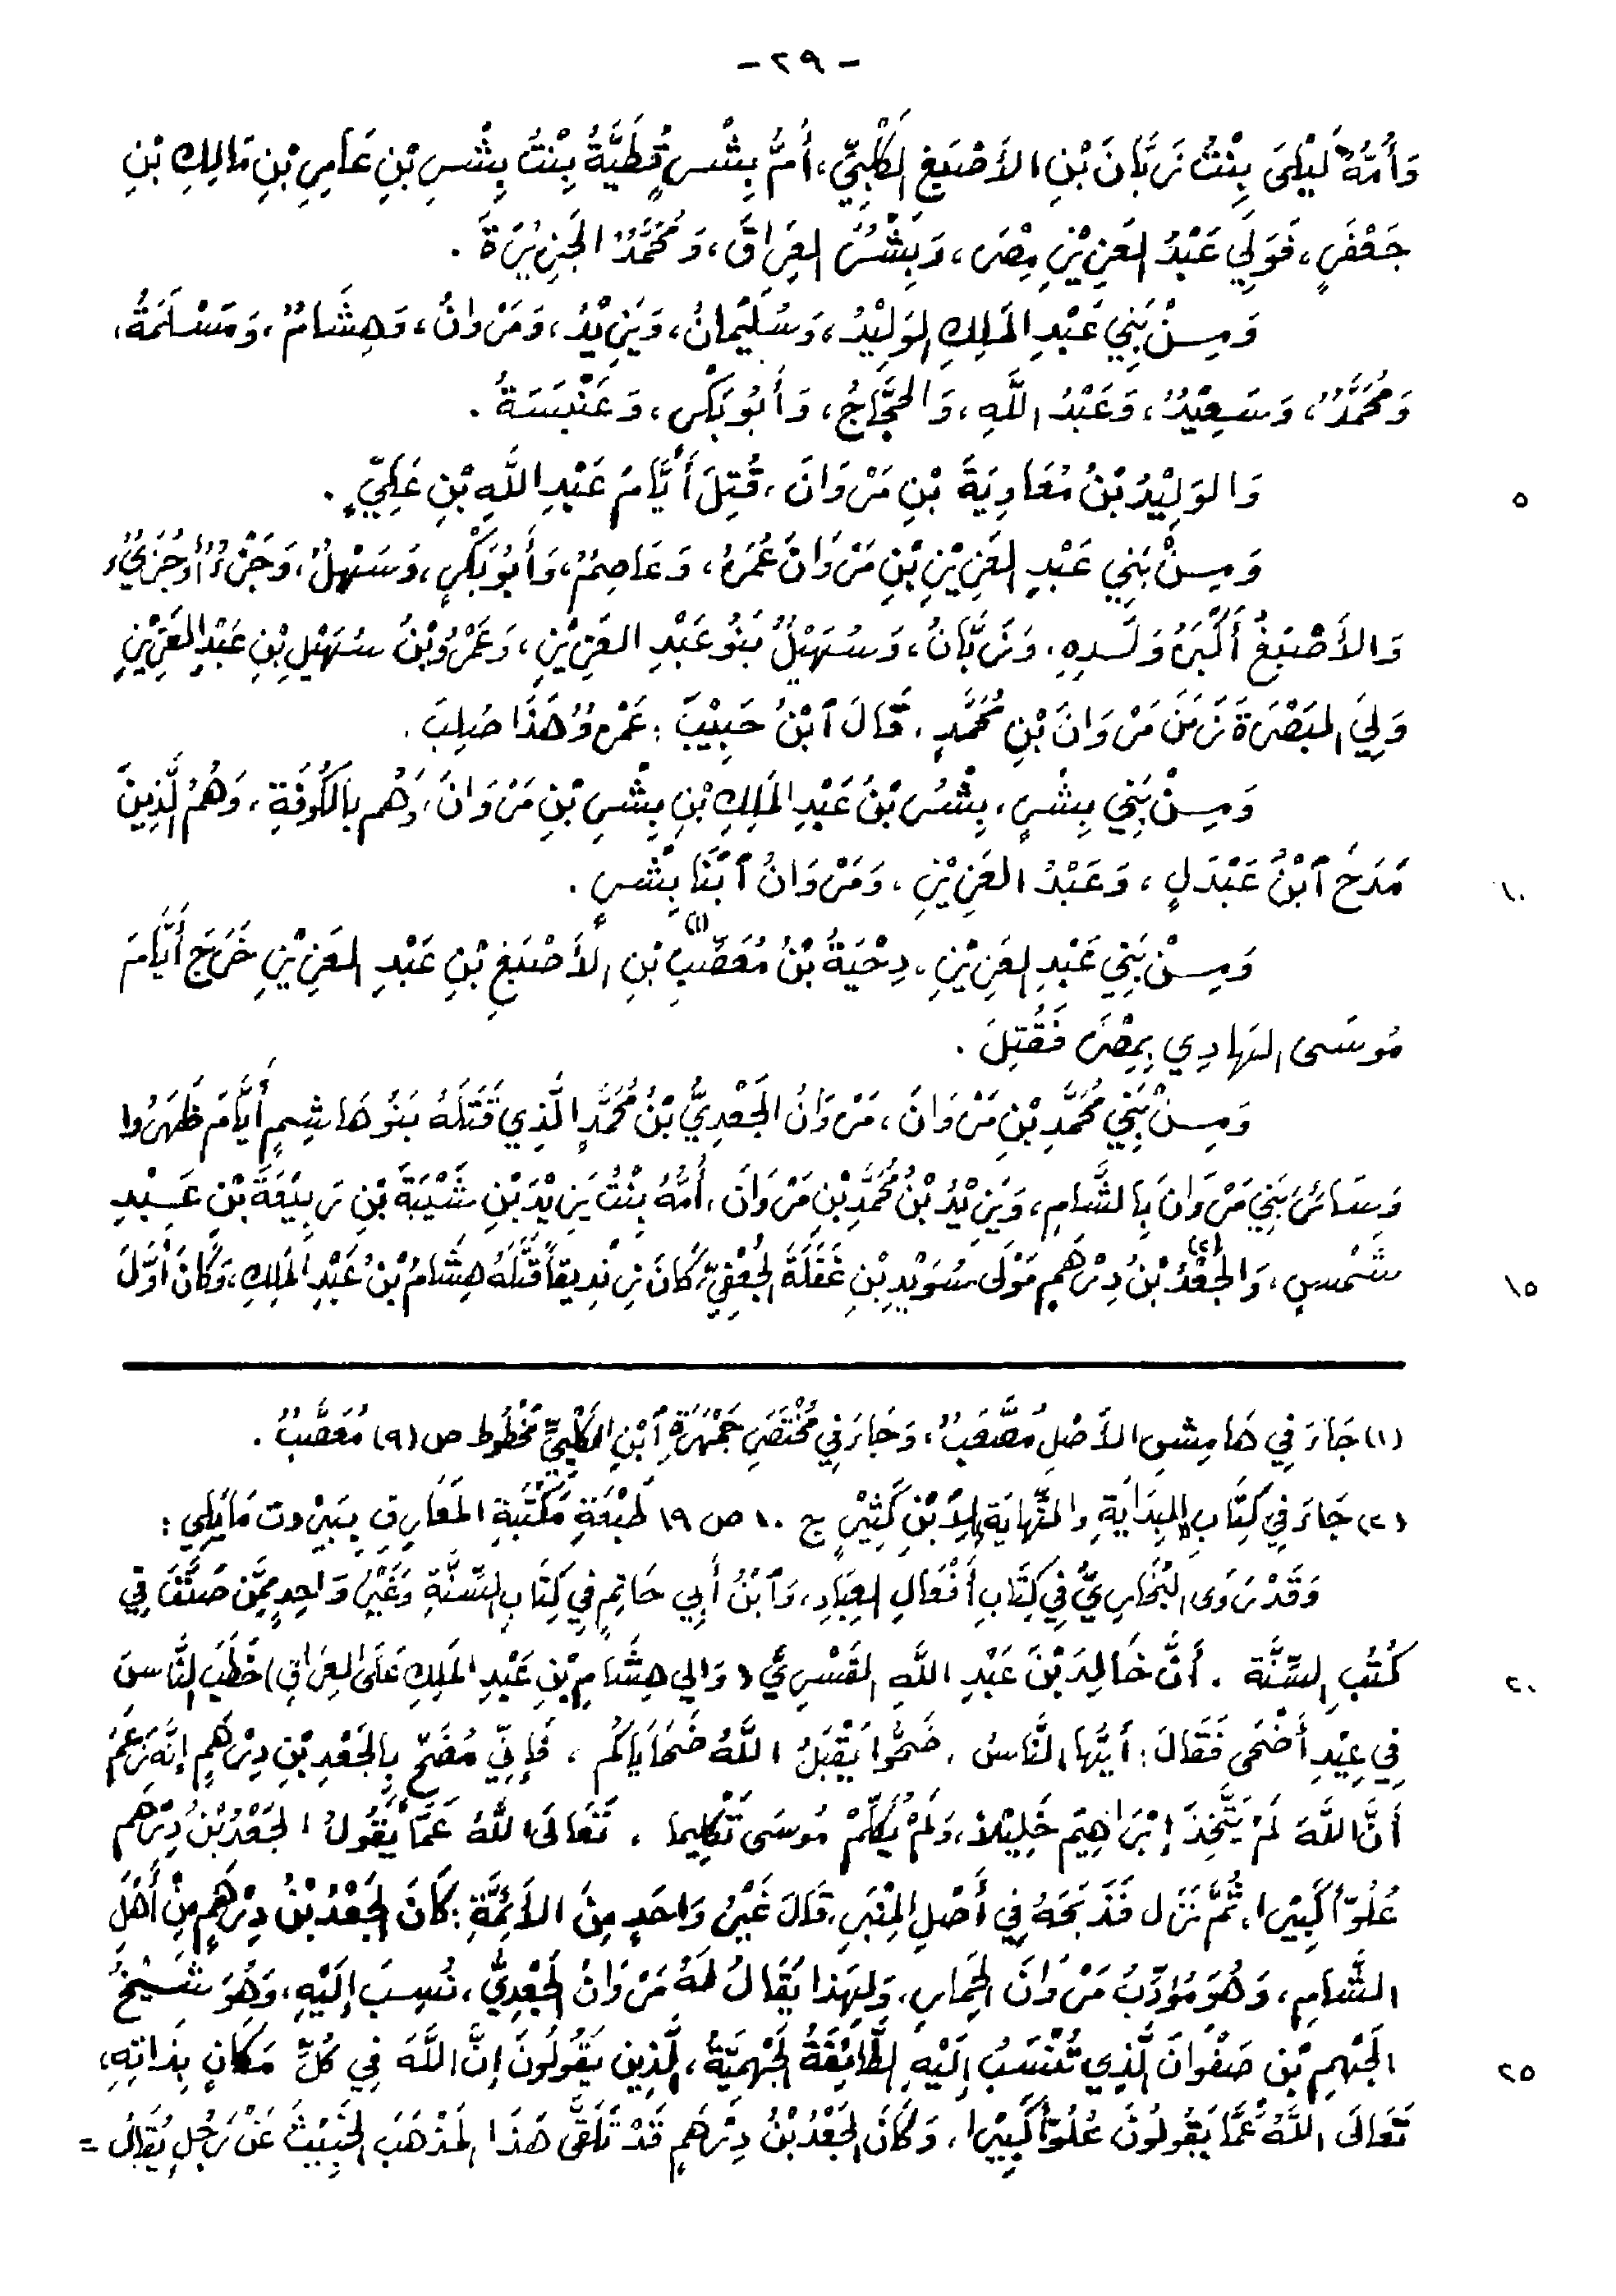 - ٢٩ -
وَأُمُّهُ لَيْلَى بِنْتُ زَبَّانَ بْنِ الأَصْبَغِ الكَلْبِيِّ، أُمُّ بِشْرٍ قُطَيَّةُ بِنْتُ بِشْرِ بْنِ عَامِرِ بْنِ مَالِكِ بْنِ
جَعْفَرٍ، فَوَلِيَ عَبْدُ العَزِيْزِ مِصْرَ، وَبِشْرُ العِرَاقَ، وَمُحَمَّدُ الجَزِيْرَةَ .
وَمِنْ بَنِي عَبْدِ المَلِكِ الوَلِيْدُ، وَسُلَيْمَانُ، وَيَزِيْدُ، وَمَرْوَانُ، وَهِشَامُ، وَمَسْلَمَةُ،
وَمُحَمَّدُ، وَسَعِيْدُ، وَعَبْدُ اللَّهِ، وَالحَجَّاجُ، وَأَبُو بَكْرٍ، وَعَنْبَسَةُ .
وَالوَلِيْدُ بْنُ مُعَاوِيَةَ بْنِ مَرْوَانَ، قُتِلَ أَيَّامَ عَبْدِ اللَّهِ بْنِ عَلِيٍّ . ٥
وَمِنْ بَنِي عَبْدِ العَزِيْزِ بْنِ مَرْوَانَ عُمَرُ، وَعَاصِمُ، وَأَبُو بَكْرٍ، وَسَهْلُ، وَجَزْءُ أَوْ جُزَيُّ،
وَالأَصْبَغُ أَكْبَرُ وَلَدِهِ، وَزَبَّانُ، وَسُهَيْلُ بَنُو عَبْدِ العَزِيْزِ، وَعَمْرُو بْنُ سُهَيْلِ بْنِ عَبْدِ العَزِيْزِ
وَلِيَ البَصْرَةَ زَمَنَ مَرْوَانَ بْنِ مُحَمَّدٍ، قَالَ ٱبْنُ حَبِيْبَ : عَمْرٌو هَذَا صُلِبَ .
وَمِنْ بَنِي بِشْرٍ، بِشْرُ بْنُ عَبْدِ المَلِكِ بْنِ بِشْرِ بْنِ مَرْوَانَ، وَهُم بِالكُوفَةِ، وَهُمُ الَّذِينَ
مَدَحَ ٱبْنُ عَبْدَلٍ، وَعَبْدُ العَزِيْزِ، وَمَرْوَانُ ٱبْنَا بِشْرٍ . ١٠
وَمِنْ بَنِي عَبْدِ العَزِيْزِ، دِحْيَةُ بْنُ مُعَصَّبِ (١) بْنِ الأَصْبَغِ بْنِ عَبْدِ العَزِيْزِ خَرَجَ أَيَّامَ
مُوسَى الهَادِي بِمِصْرَ فَقُتِلَ .
وَمِنْ بَنِي مُحَمَّدِ بْنِ مَرْوَانَ، مَرْوَانُ الجَعْدِيُّ بْنُ مُحَمَّدٍ الَّذِي قَتَلَهُ بَنُو هَاشِمٍ أَيَّامَ ظَهَرُوا
وَسَائِرَ بَنِي مَرْوَانَ بِالشَّامِ، وَيَزِيْدُ بْنُ مُحَمَّدِ بْنِ مَرْوَانَ، أُمُّهُ بِنْتُ يَزِيْدَ بْنِ شَيْبَةَ بْنِ رَبِيْعَةَ بْنِ عَبْدِ
شَمْسٍ، وَالجَعْدُ (٢) بْنُ دِرْهَمٍ مَوْلَى سُوَيْدِ بْنِ غَفَلَةَ الجُعْفِيِّ، كَانَ زِنْدِيقاً قَتَلَهُ هِشَامُ بْنُ عَبْدِ المَلِكِ، وَكَانَ أَوَّلَ ١٥
(١) جَاءَ فِي هَامِشِ الأَصْلِ مُصَعَّبُ، وَجَاءَ فِي مُخْتَصَرِ جَمْهَرَةِ ٱبْنِ الكَلْبِيِّ مَخْطُوط ص (٩) مُعَصَّبُ .
(٢) جَاءَ فِي كِتَابِ البِدَايَةِ وَالنِّهَايَةِ لِابْنِ كَثِيْرٍ ج ١٠ ص ١٩ طَبْعَةِ مَكْتَبَةِ المَعَارِفِ بِبَيْرُوت مَا يَلِي :
وَقَدْ رَوَى البُخَارِيُّ فِي كِتَابِ أَفْعَالِ العِبَادِ، وَٱبْنُ أَبِي حَاتِمٍ فِي كِتَابِ السُّنَّةِ وَغَيْرُ وَاحِدٍ مِمَّن صَنَّفَ فِي
كُتُبِ السُّنَّة . أَنَّ خَالِدَ بْنَ عَبْدِ اللَّهِ القَسْرِيَّ (وَالِي هِشَامِ بْنِ عَبْدِ المَلِكِ عَلَى العِرَاقِ) خَطَبَ النَّاسَ ٢٠
فِي عِيْدِ أَضْحَى فَقَالَ : أَيُّهَا النَّاسُ، ضَحُّوا يَقْبَلُ اللَّهُ ضَحَايَاكُم، فَإِنِّي مُضَحٍّ بِالجَعْدِ بْنِ دِرْهَمٍ إِنَّهُ زَعَمَ
أَنَّ اللَّهَ لَمْ يَتَّخِذْ إِبْرَاهِيْمَ خَلِيْلاً، وَلَمْ يُكَلِّمْ مُوسَى تَكْلِيما، تَعَالَى اللَّهُ عَمَّا يَقُولُ الجَعْدُ بْنُ دِرْهَمٍ
عُلُوّاً كَبِيْرا، ثُمَّ نَزَل فَذَبَحَهُ فِي أَصْلِ المِنْبَرِ، قَالَ غَيْرُ وَاحِدٍ مِنَ الأَئِمَّةِ : كَانَ الجَعْدُ بْنُ دِرْهَمٍ مِنْ أَهْلِ
الشَّامِ، وَهُوَ مُؤَدِّبُ مَرْوَانَ الحِمَارِ، وَلِهَذَا يُقَالُ لَهُ مَرْوَانُ الجَعْدِيُّ، نُسِبَ إِلَيْهِ، وَهُوَ شَيْخُ
الجَهْمِ بْنِ صَفْوَانَ الَّذِي تُنْسَبُ إِلَيْهِ الطَّائِفَةُ الجَهْمِيَّةُ، الَّذِينَ يَقُولُونَ إِنَّ اللَّهَ فِي كُلِّ مَكَانٍ بِذَاتِهِ، ٢٥
تَعَالَى اللَّهُ عَمَّا يَقُولُونَ عُلُوّاً كَبِيْرا، وَكَانَ الجَعْدُ بْنُ دِرْهَمٍ قَدْ تَلَقَّى هَذَا المَذْهَبَ الخَبِيْثَ عَنْ رَجُلٍ يُقَالُ =